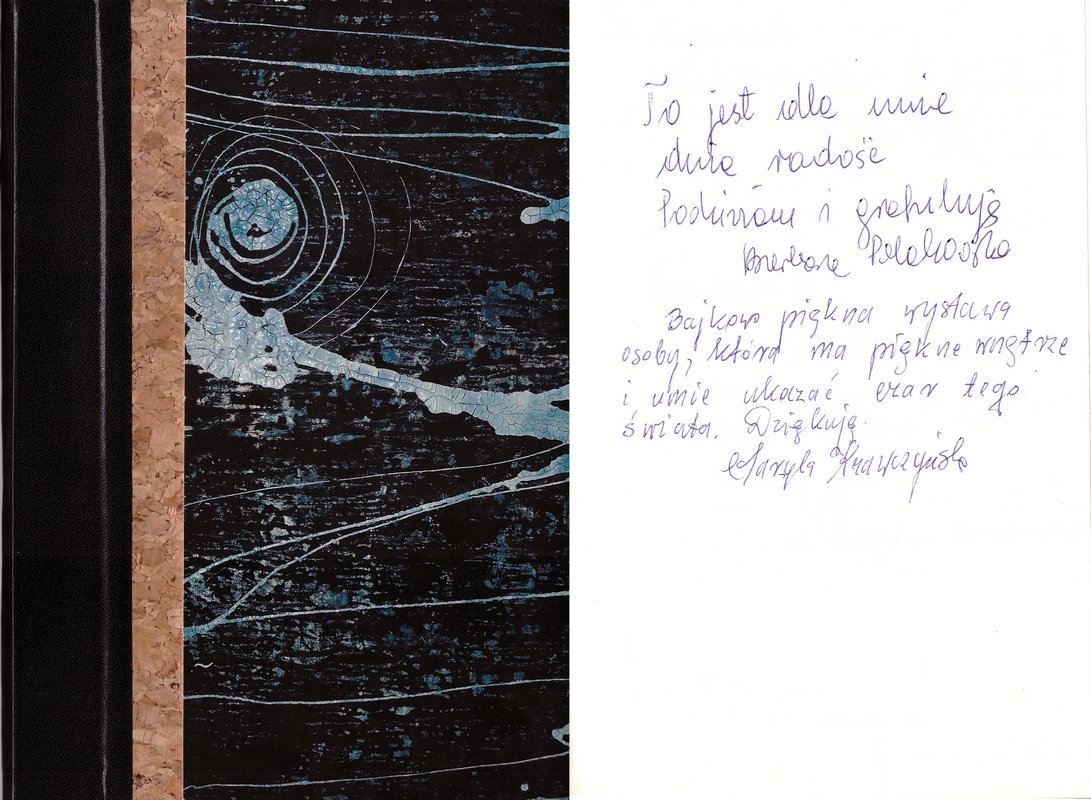 To jest dla mnie
duża radość
Podziwiam i gratuluję
Barbara
Bajkowo piękna wystawa
osoby, która ma piękne wnętrze
i umie ukazać czar tego
świata. Dziękuję.
Maryla Krawczyńska